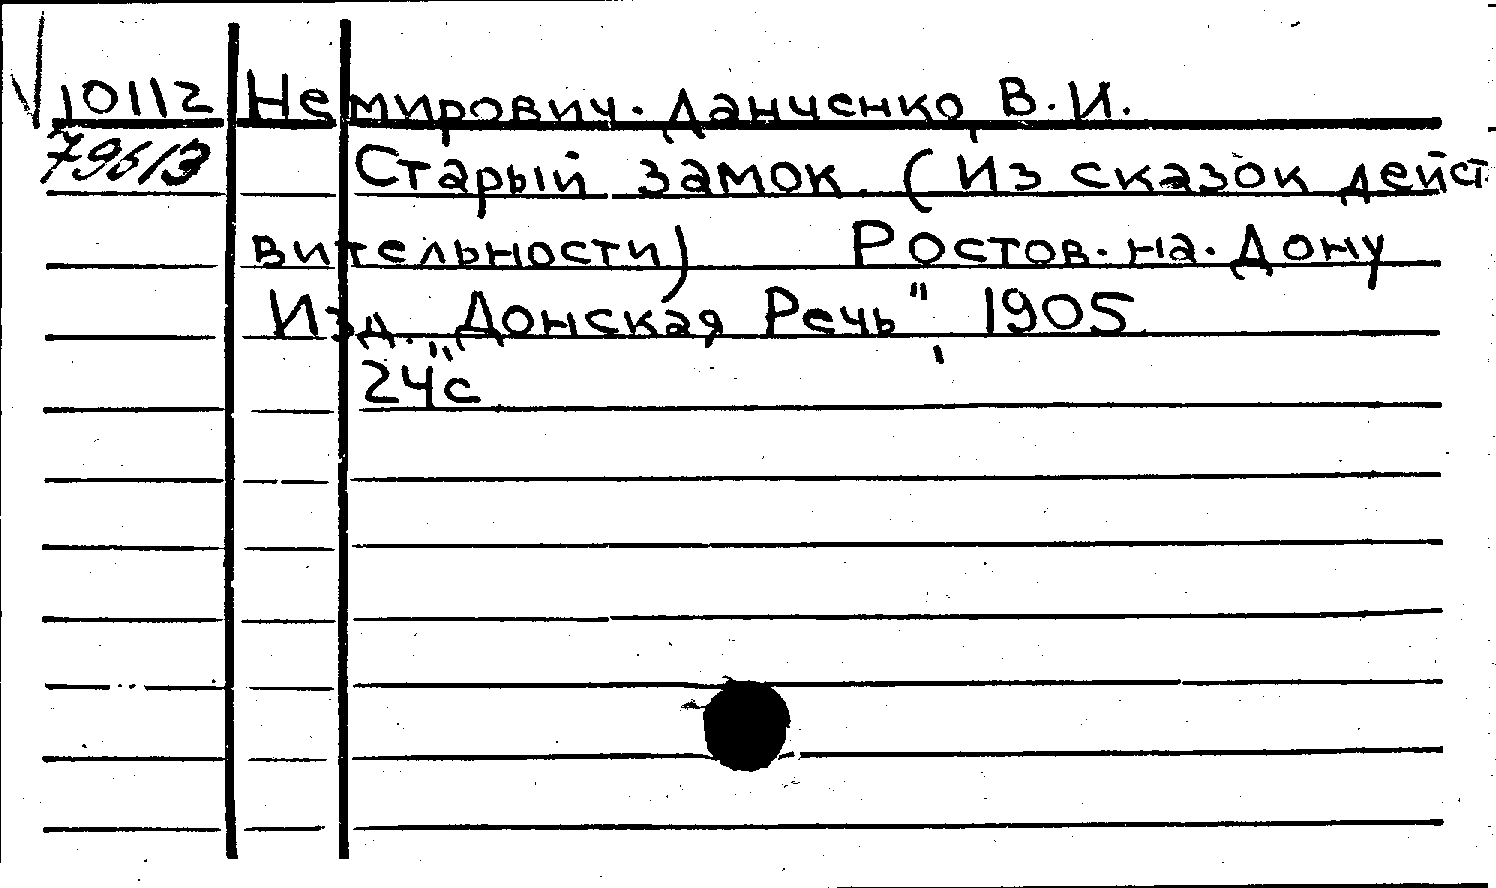 10112 Немирович-Данченко, В.И.
Старый замок. (Из сказок дейст
вительности) Ростов-на-Дону
Изд. „Донская Речь", 1905
24 с